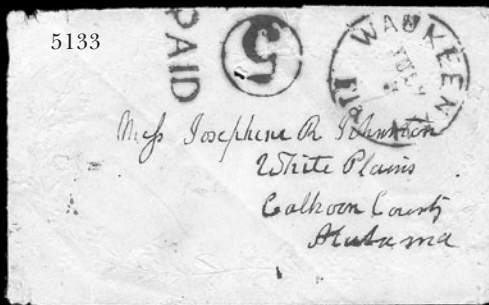 5133
PAID
5
WAUKEEN
JULY
Fla
Miss Josephine R Johnston
White Plains
Calhoun County
Alabama